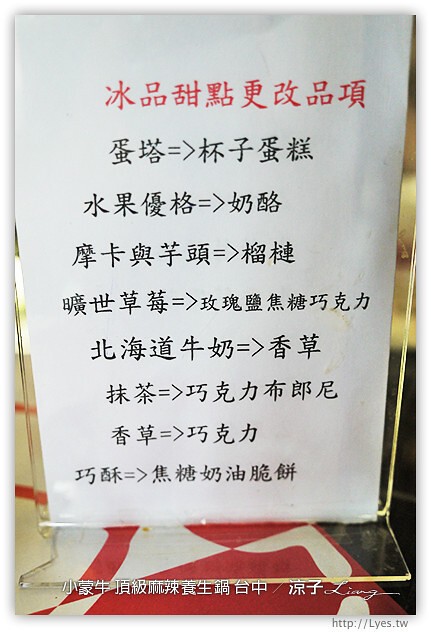 冰品甜點更改品項
蛋塔=>杯子蛋糕
水果優格=>奶酪
摩卡與芋頭=>榴槤
曠世草莓=>玫瑰鹽焦糖巧克力
北海道牛奶=>香草
抹茶=>巧克力布郎尼
香草=>巧克力
巧酥=>焦糖奶油脆餅
小蒙牛 頂級麻辣養生鍋 台中 / 涼子 Liang
http://Lyes.tw